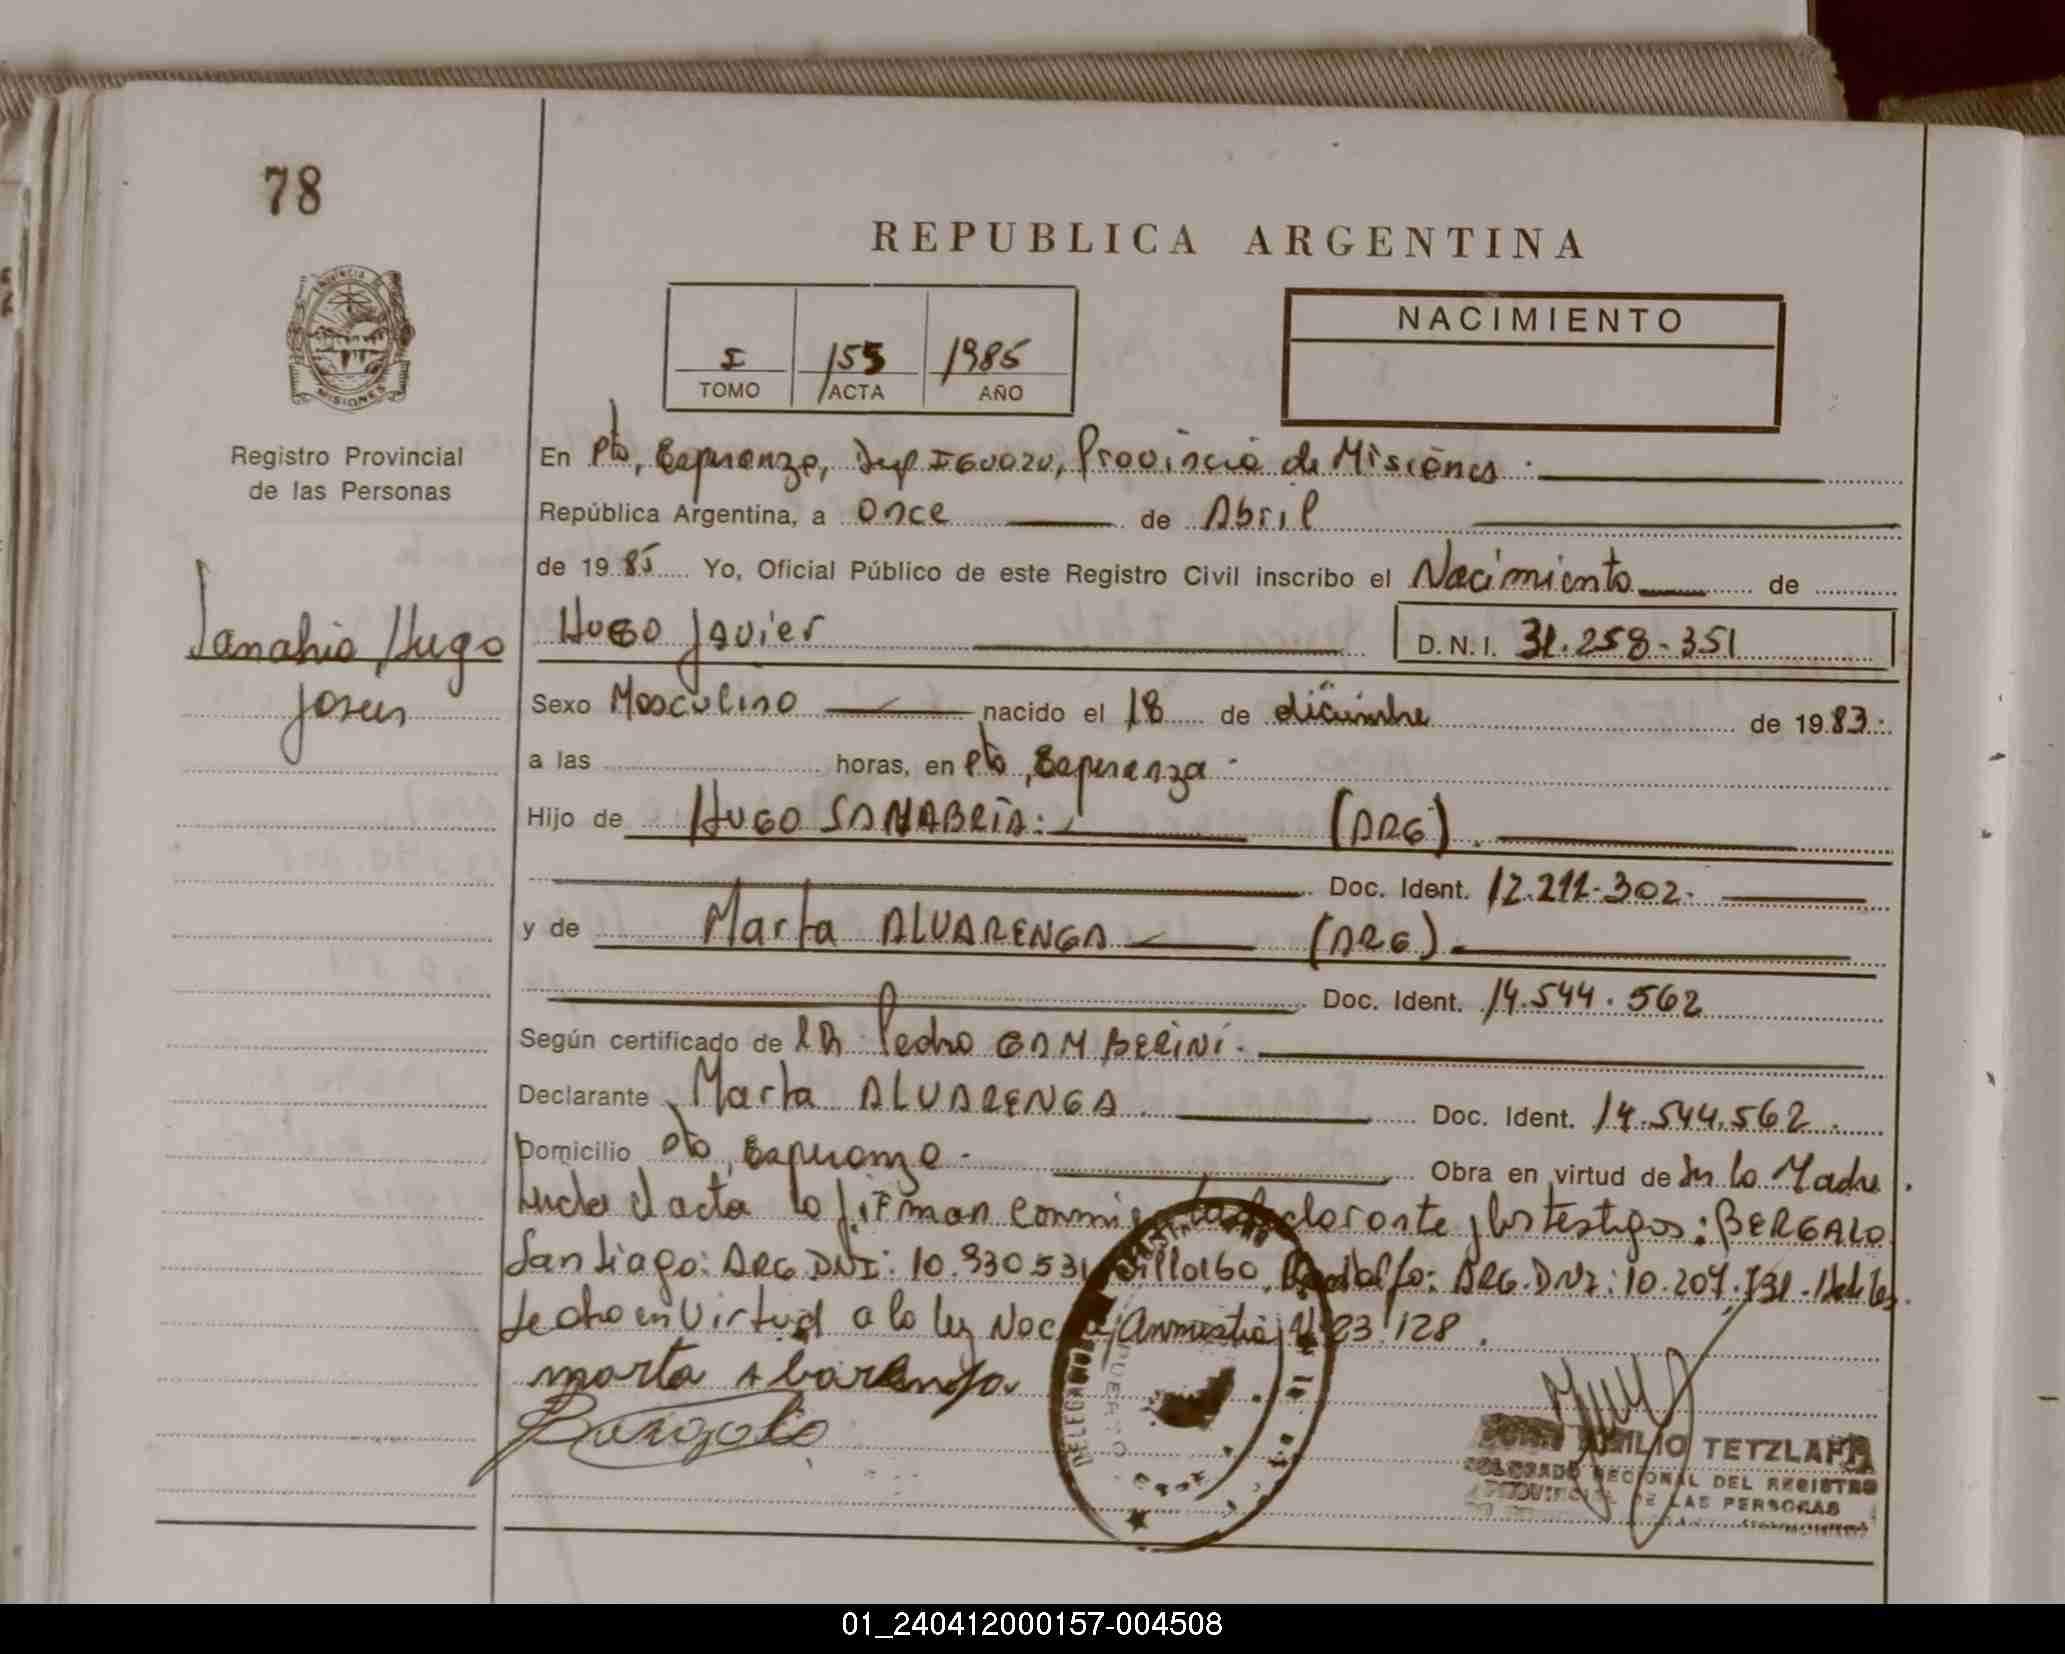 78
REPUBLICA ARGENTINA
PROVINCIA DE MISIONES
I 155 1985
TOMO ACTA AÑO
NACIMIENTO
Registro Provincial
de las Personas
Sanabria Hugo
Javier
En Pto, Esperanza, Dep IGUAZU, Provincia de Misiones .
República Argentina, a once de Abril
de 1985 Yo, Oficial Público de este Registro Civil inscribo el Nacimiento de
HUGO Javier D.N.I. 31.258.351
Sexo Masculino nacido el 18 de diciembre de 1983.
a las horas, en Pto, Esperanza
Hijo de HUGO SANABRIA: (ARG).
Doc. Ident. 12.211.302.
y de Marta ALVARENGA (ARG)
Doc. Ident. 14.544.562
Según certificado de Pedro GAMBERINI.
Declarante Marta ALVARENGA Doc. Ident. 14.544.562.
Domicilio Pto, Esperanza Obra en virtud de Ser la Madre.
el acta la firman declarante y los testigos: BERGALO
Santiago: ARG.DNI: 10.930.531 Villalba, Rodolfo: ARG.DNI: 10.207.731.
en Virtud a la ley Amnistia N 23.128.
marta Albarenga
EMILIO TETZLAFF
DELEGADO REGIONAL DEL REGISTRO
PROVINCIAL DE LAS PERSONAS
01_240412000157-004508